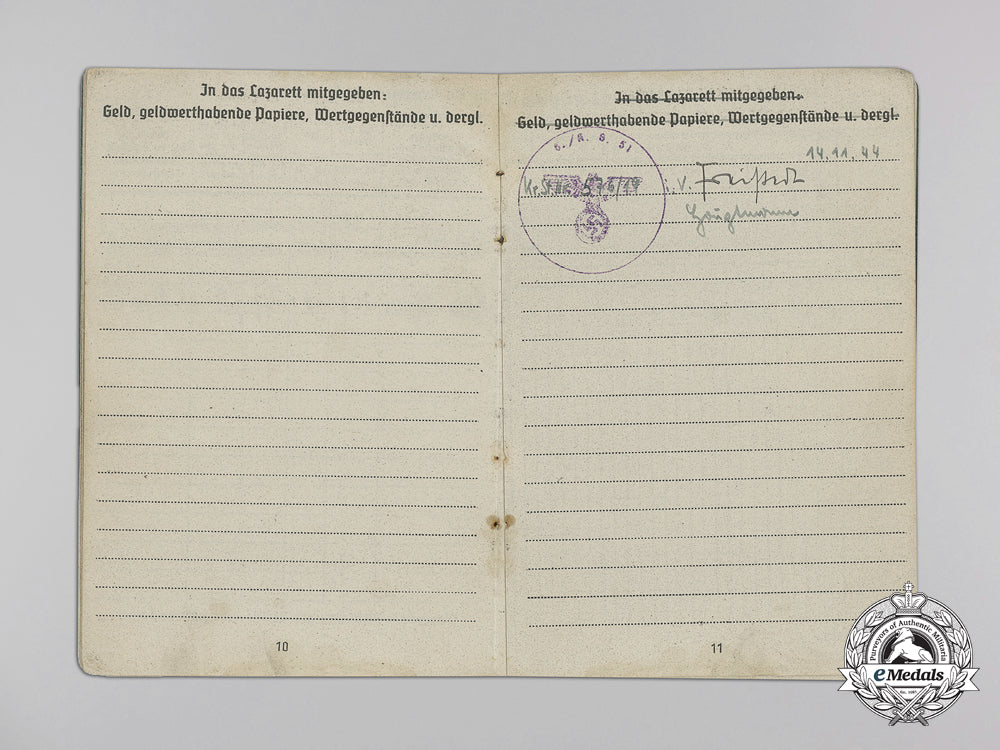 In das Lazarett mitgegeben:
Geld, geldwerthabende Papiere, Wertgegenstände u. dergl.
10
In das Lazarett mitgegeben:
Geld, geldwerthabende Papiere, Wertgegenstände u. dergl.
14.11.44
v.
Hauptmann
11
Purveyors of Authentic Militaria
eMedals